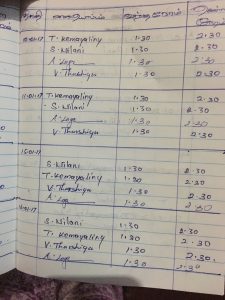 T. Komayaliny 1.30 2.30
S. Nilani 1.30 2.30
A. Loga 1.30 2.30
V. Tharshiga 1.30 2.30
11-01-17 T. Komayaliny 1.30 2.30
S. Nilani 1.30 2.30
A. Loga 1.30 2.30
V. Tharshiga 1.30 2.30
S. Nilani 1.30 2.30
T. Komayaliny 1.30 2.30
V. Tharshiga 1.30 2.30
A. Loga 1.30 2.30
S. Nilani 1.30 2.30
T. Komayaliny 1.30 2.30
V. Tharshiga 1.30 2.30
A. Loga 1.30 2.30